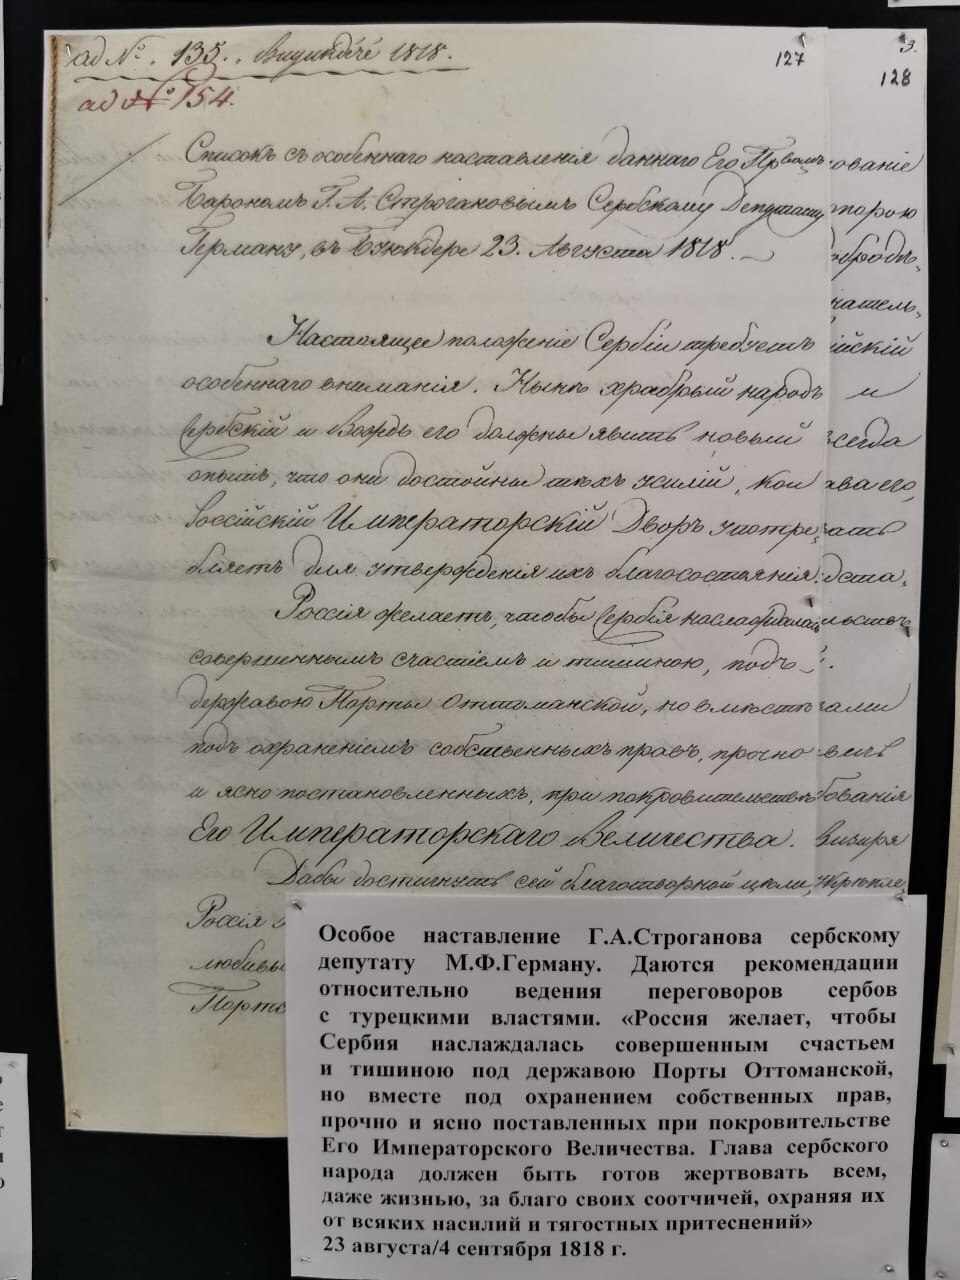 ad № 135. Buyukdéré 1818.
ad № 154.
127
3.
128
Списокъ съ особеннаго наставленія даннаго Его Прволмъ
Барономъ Г. А. Строгановымъ Сербскому Депутату
Герману, въ Буюкдере 23. Августа 1818.
Настоящее положеніе Сербіи требуетъ
особеннаго вниманія. Нынѣ храбрый народъ
Сербскій и Вождь его должны явить новый
опытъ, что они достойны тѣхъ усилій, кои
Россійскій Императорскій Дворъ употре-
бляетъ для утвержденія ихъ благосостоянія.
Россія желаетъ, чтобы Сербія наслаждалась
совершеннымъ счастіемъ и тишиною, подъ
державою Порты Оттоманской, но вмѣстѣ
подъ охраненіемъ собственныхъ правъ, прочно
и ясно постановленныхъ, при покровительствѣ
Его Императорскаго Величества.
Дабы достигнуть сей благотворной цѣли,
Россія
любивы
Порто
ованіе
торою
оброд-
атель-
ійскій
и
всегда
ава его,
ать
дста-
льствъ
гами
бованія
Визиря
укрѣпле-
Особое наставление Г.А.Строганова сербскому
депутату М.Ф.Герману. Даются рекомендации
относительно ведения переговоров сербов
с турецкими властями. «Россия желает, чтобы
Сербия наслаждалась совершенным счастьем
и тишиною под державою Порты Оттоманской,
но вместе под охранением собственных прав,
прочно и ясно поставленных при покровительстве
Его Императорского Величества. Глава сербского
народа должен быть готов жертвовать всем,
даже жизнью, за благо своих соотчичей, охраняя их
от всяких насилий и тягостных притеснений»
23 августа/4 сентября 1818 г.